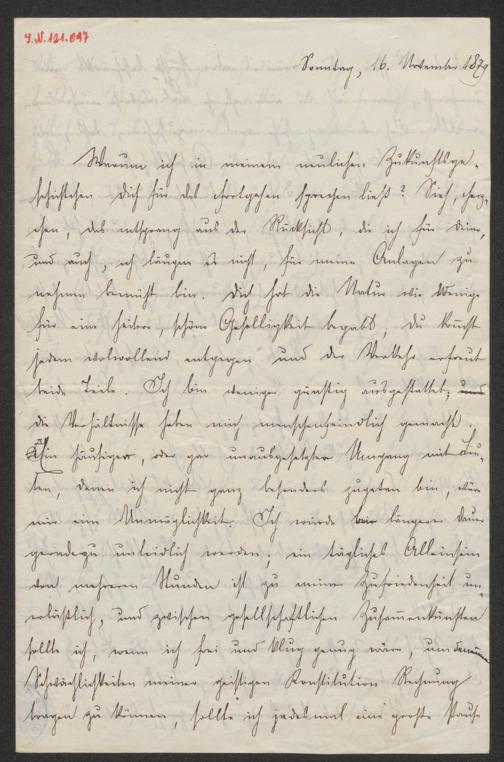 I.N. 121.097
Sonntag, 16. November 1879
Warum ich in meinem neulichen Zukunftsge-
schichtchen Dich für das sprechen ließ? Sieh, Herz-
chen, das entsprang aus der Rücksicht, die ich für Deine,
und auch, ich läugne es nicht, für meine Anlagen zu
nehmen bemüht bin. Dich hat die Natur wie Wenige
für eine heitere, schöne Geselligkeit begabt; du kommst
jedem wolwollend entgegen und der Verkehr erfreut
beide Teile. Ich bin weniger günstig ausgestattet; und
die Verhältnisse haben mich menschenfeindlich gemacht.
Ein häufiger, oder gar unausgesetzter Umgang mit Leu-
ten, denen ich nicht ganz besonders zugetan bin, wäre
mir eine Unmöglichkeit. Ich würde bei längerer Dauer
geradezu unleidlich werden; ein tägliches Alleinsein
von mehreren Stunden ist zu meiner Zufriedenheit un-
erläßlich, und zwischen gesellschaftlichen Zusammenkünften
sollte ich, wenn ich frei und klug genug wäre, um den
Schwächlichkeiten meiner geistigen Konstitution Rechnung
tragen zu können, sollte ich jedesmal eine große Pause